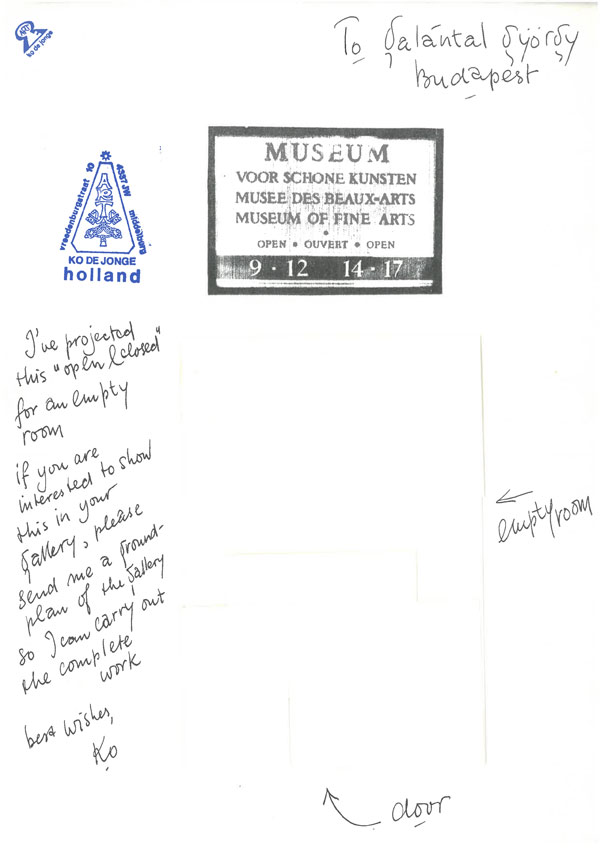 ARTS
ko de jonge
To Galántal György
Budapest
vreedenburgstraat 10
4337 JW middelburg
KO DE JONGE
holland
MUSEUM
VOOR SCHONE KUNSTEN
MUSEE DES BEAUX-ARTS
MUSEUM OF FINE ARTS
OPEN • OUVERT • OPEN
9 · 12 14 · 17
I've projected
this "open & closed"
for an empty
room
if you are
interested to show
this in your
gallery, please
send me a ground-
plan of the gallery
so I can carry out
the complete
work
best wishes,
Ko
← empty room
door